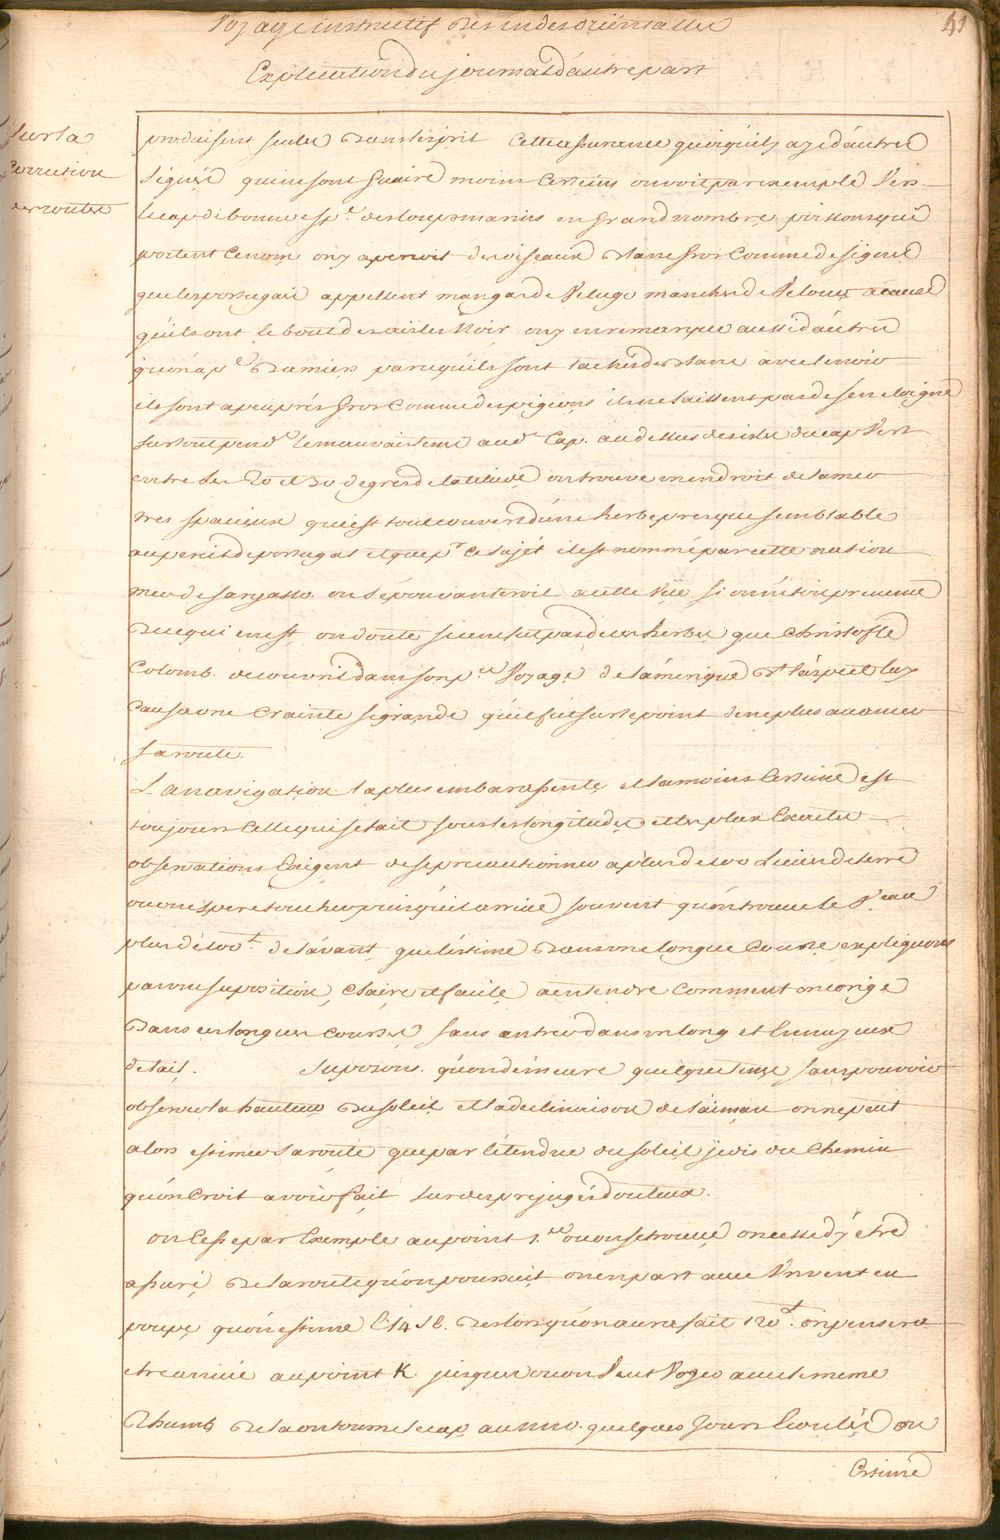 Voyage instructif des indes orientalles
41
Explication du journal d'autre part
sur la
correction
des routes
produisent seules dans l'esprit Cette assurance quoiqu'il y aye d'autres
signes qui ne sont guaire moins certeins on voit par exemple vers
le cap de bonne espce des loups marins en grand nombre poissons qui
portent ce nom on y aperçoit des oiseaux blanc gros comme des signes
que les portugais appellent mangas de velugo manches de velours a cause
qu'ils ont le bout des aisles noir on y en remarque aussi d'autres
qu'on ape damiers parcequ'ils sont tachés de blanc avec le noir
ils sont a peu prés gros comme des pigeons ils ne laissent pas de s'en eloigner
sur tout pend.t le mauvais tems aud. Cap. au dessus des isles du cap Vert
entre les 20 et 30 degrés de latitude on trouve un endroit de la mer
tres spacieux qui est tout couvert d'une herbe presque semblable
au persil de portugal et que pr ce sujet il est nommé par cette nation
mer de sargasso. on s'épouvanteroit a cette vüe si on n'étoit prevenu
de ce qui en est, on doute si ce ne fut pas de ces herbes que Christofle
Colomb. decouvrit dans son per Voyage de l'amerique dt l'aspect luy
causa une crainte si grande qu'il fut sur le point de ne plus avancer
sa route.
La navigation la plus embarassente et la moins certeine est
toujours celle qui se fait sous les longitudes et les plus exactes
observations exigent de se precautionner a plus de 100 lieües de terre
ou on espere toucher puisqu'il arrive souvent qu'on trouve le Veau
plus de 100 l. de l'avant que l'estime dans une longue course expliquons
par une suposition claire et facile a entendre comment on corrige
dans ces longues courses sans entrer dans un long et ennuyeux
detail. Suposons. qu'on demeure quelque tems sans pouvoir
observer la hauteur du soleil et la declinaison de l'aiman on ne peut
alors estimer sa route que par l'étendue du soleil je dis du chemin
qu'on croit avoir fait sur des prejugés douteux.
on cesse par exemple au point 1.er ou on se trouve on cesse d'y etre
assuré de la route qu'on poursuit on en part avec un vent en
poupe qu'on estime l'E 1/4 SE. des lors qu'on aura fait 120 l. on pensera
etre arrivé au point K. jusques ou on veut voger avec le meme
Rhumb de la on tourne le cap au NNO. quelques jours ecoulés on
estime